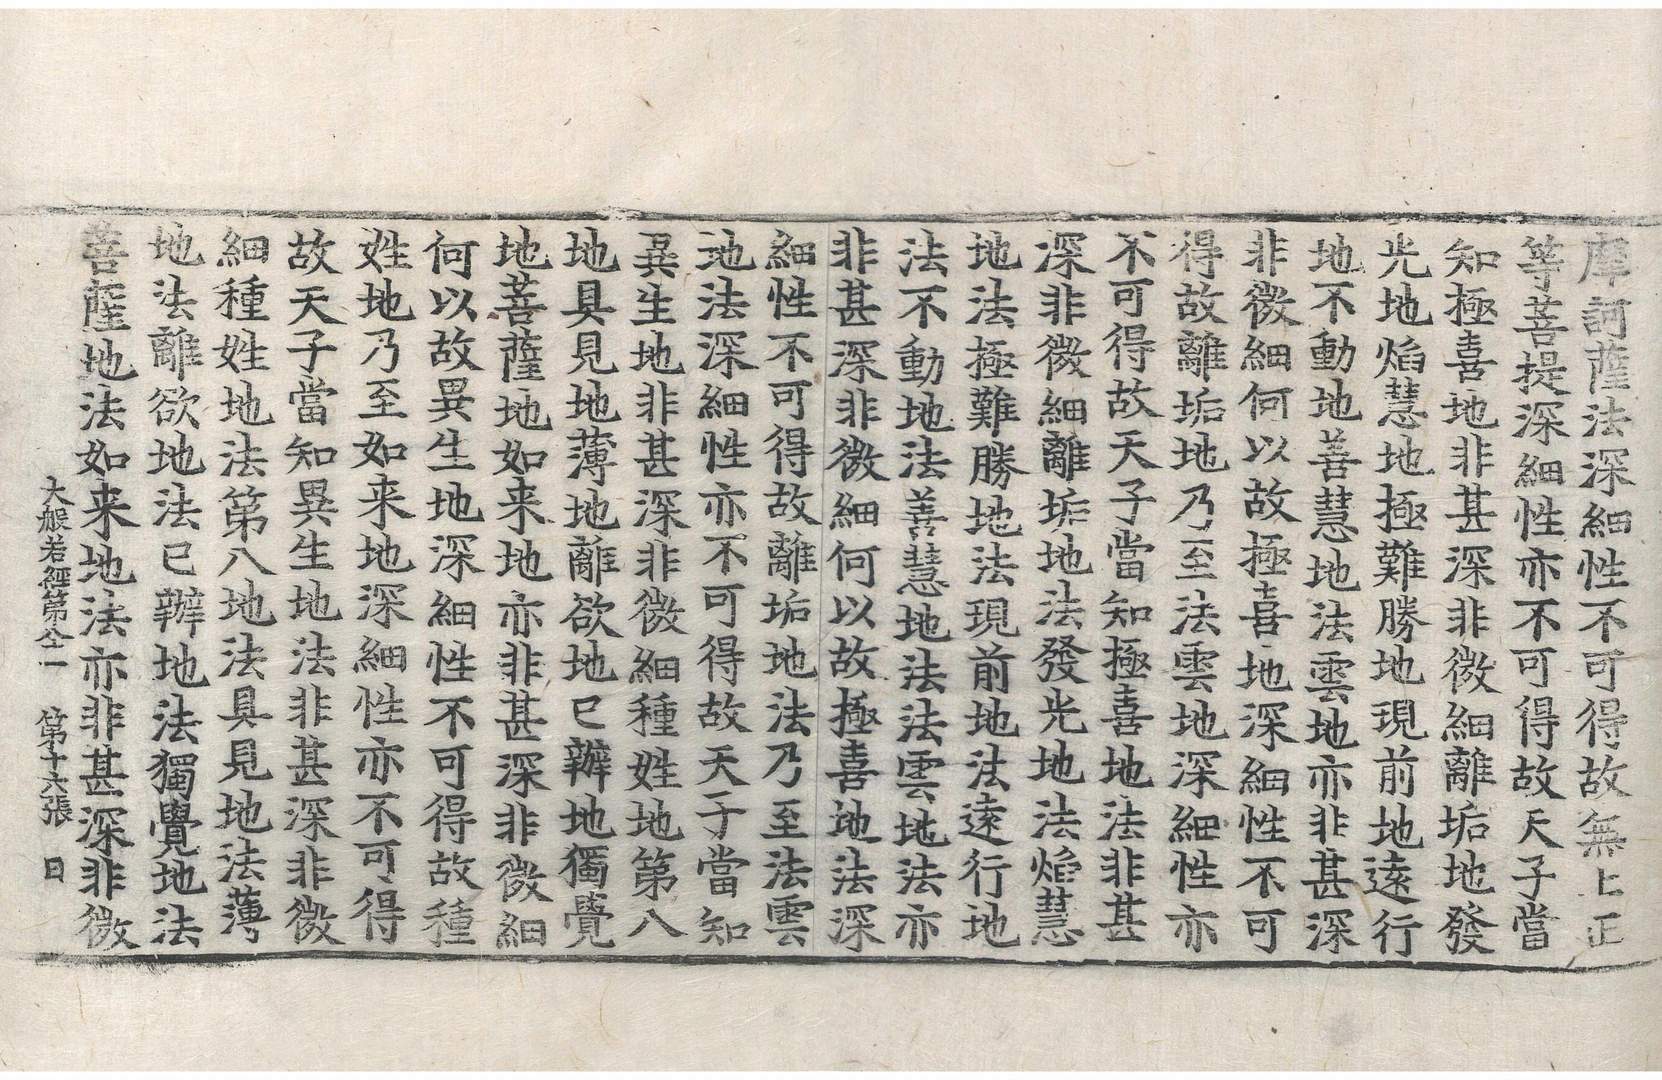 摩訶薩法深細性不可得故無上正
等菩提深細性亦不可得故天子當
知極喜地非甚深非微細離垢地發
光地焰慧地極難勝地現前地遠行
地不動地善慧地法雲地亦非甚深
非微細何以故極喜地深細性不可
得故離垢地乃至法雲地深細性亦
不可得故天子當知極喜地法非甚
深非微細離垢地法發光地法焰慧
地法極難勝地法現前地法遠行地
法不動地法善慧地法法雲地法亦
非甚深非微細何以故極喜地法深
細性不可得故離垢地法乃至法雲
地法深細性亦不可得故天子當知
異生地非甚深非微細種姓地第八
地具見地薄地離欲地已辦地獨覺
地菩薩地如来地亦非甚深非微細
何以故異生地深細性不可得故種
姓地乃至如来地深細性亦不可得
故天子當知異生地法非甚深非微
細種姓地法第八地法具見地法薄
地法離欲地法已辦地法獨覺地法
菩薩地法如来地法亦非甚深非微
大般若經第仐一　第十六張　日